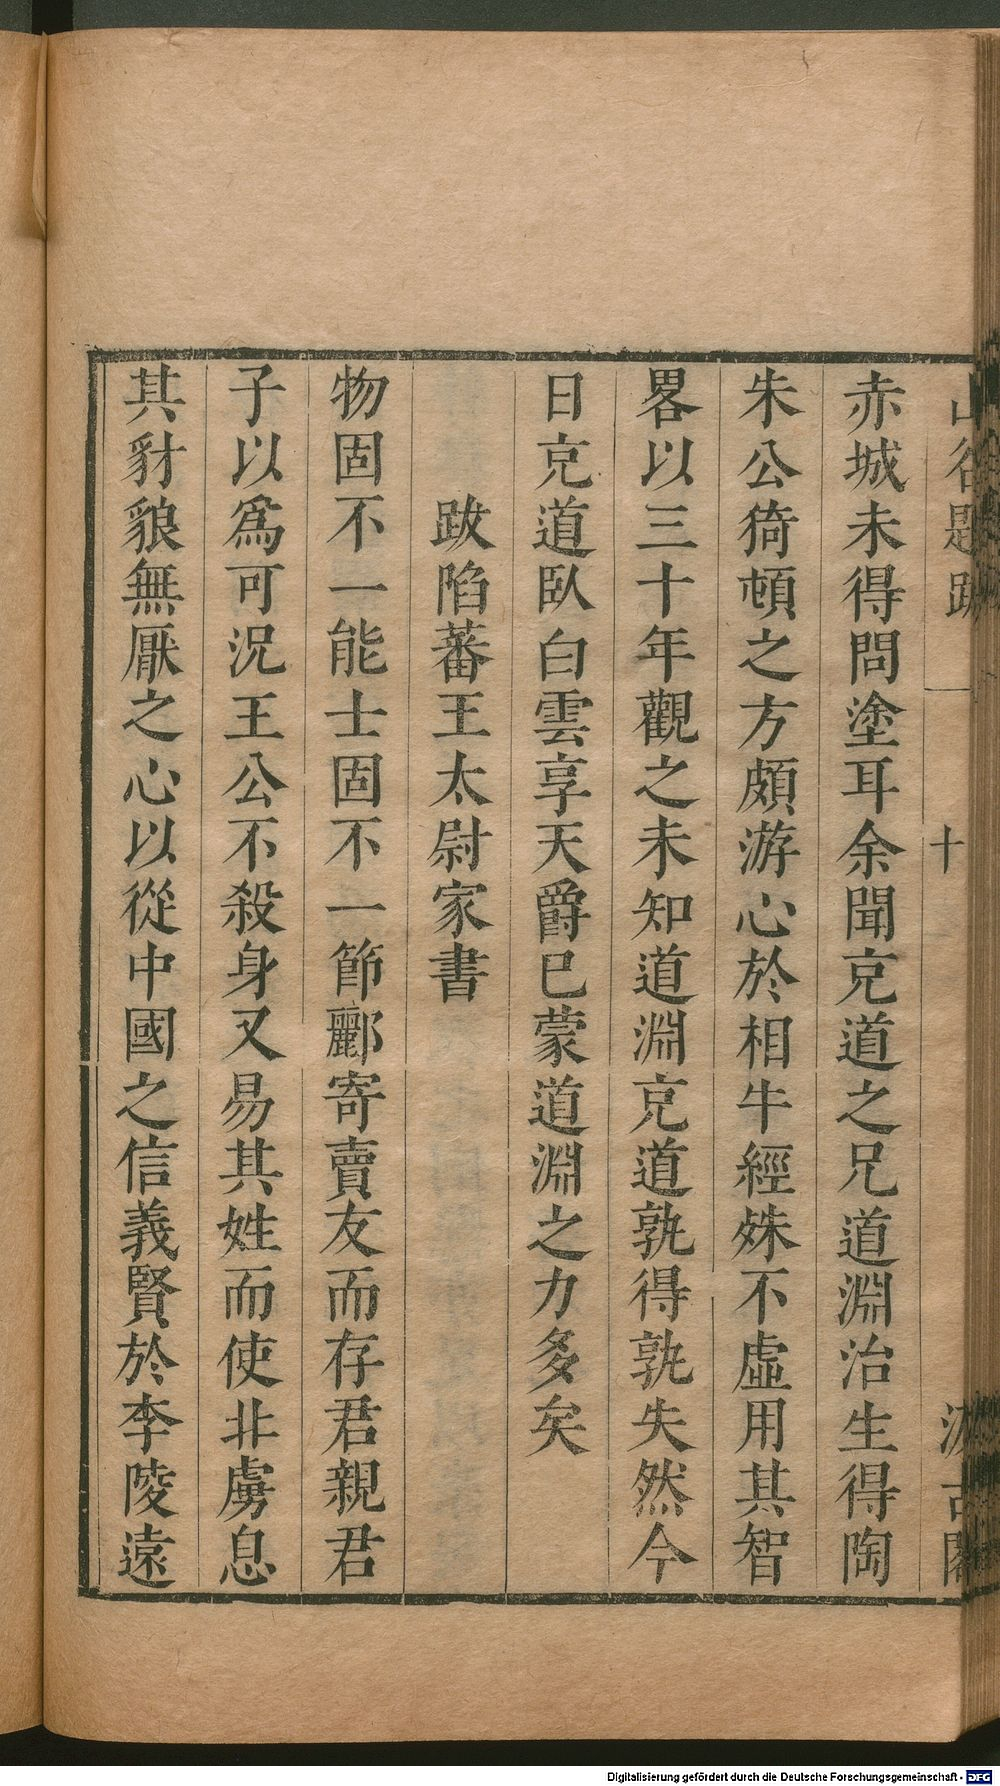 山谷題跋 十 汲古閣
赤城未得問塗耳余聞克道之兄道淵治生得陶
朱公猗頓之方頗游心於相牛經殊不虛用其智
畧以三十年觀之未知道淵克道孰得孰失然今
日克道臥白雲享天爵已蒙道淵之力多矣
跋陷蕃王太尉家書
物固不一能士固不一節酈寄賣友而存君親君
子以爲可況王公不殺身又易其姓而使非虜息
其豺狼無厭之心以從中國之信義賢於李陵遠
Digitalisierung gefördert durch die Deutsche Forschungsgemeinschaft - DFG